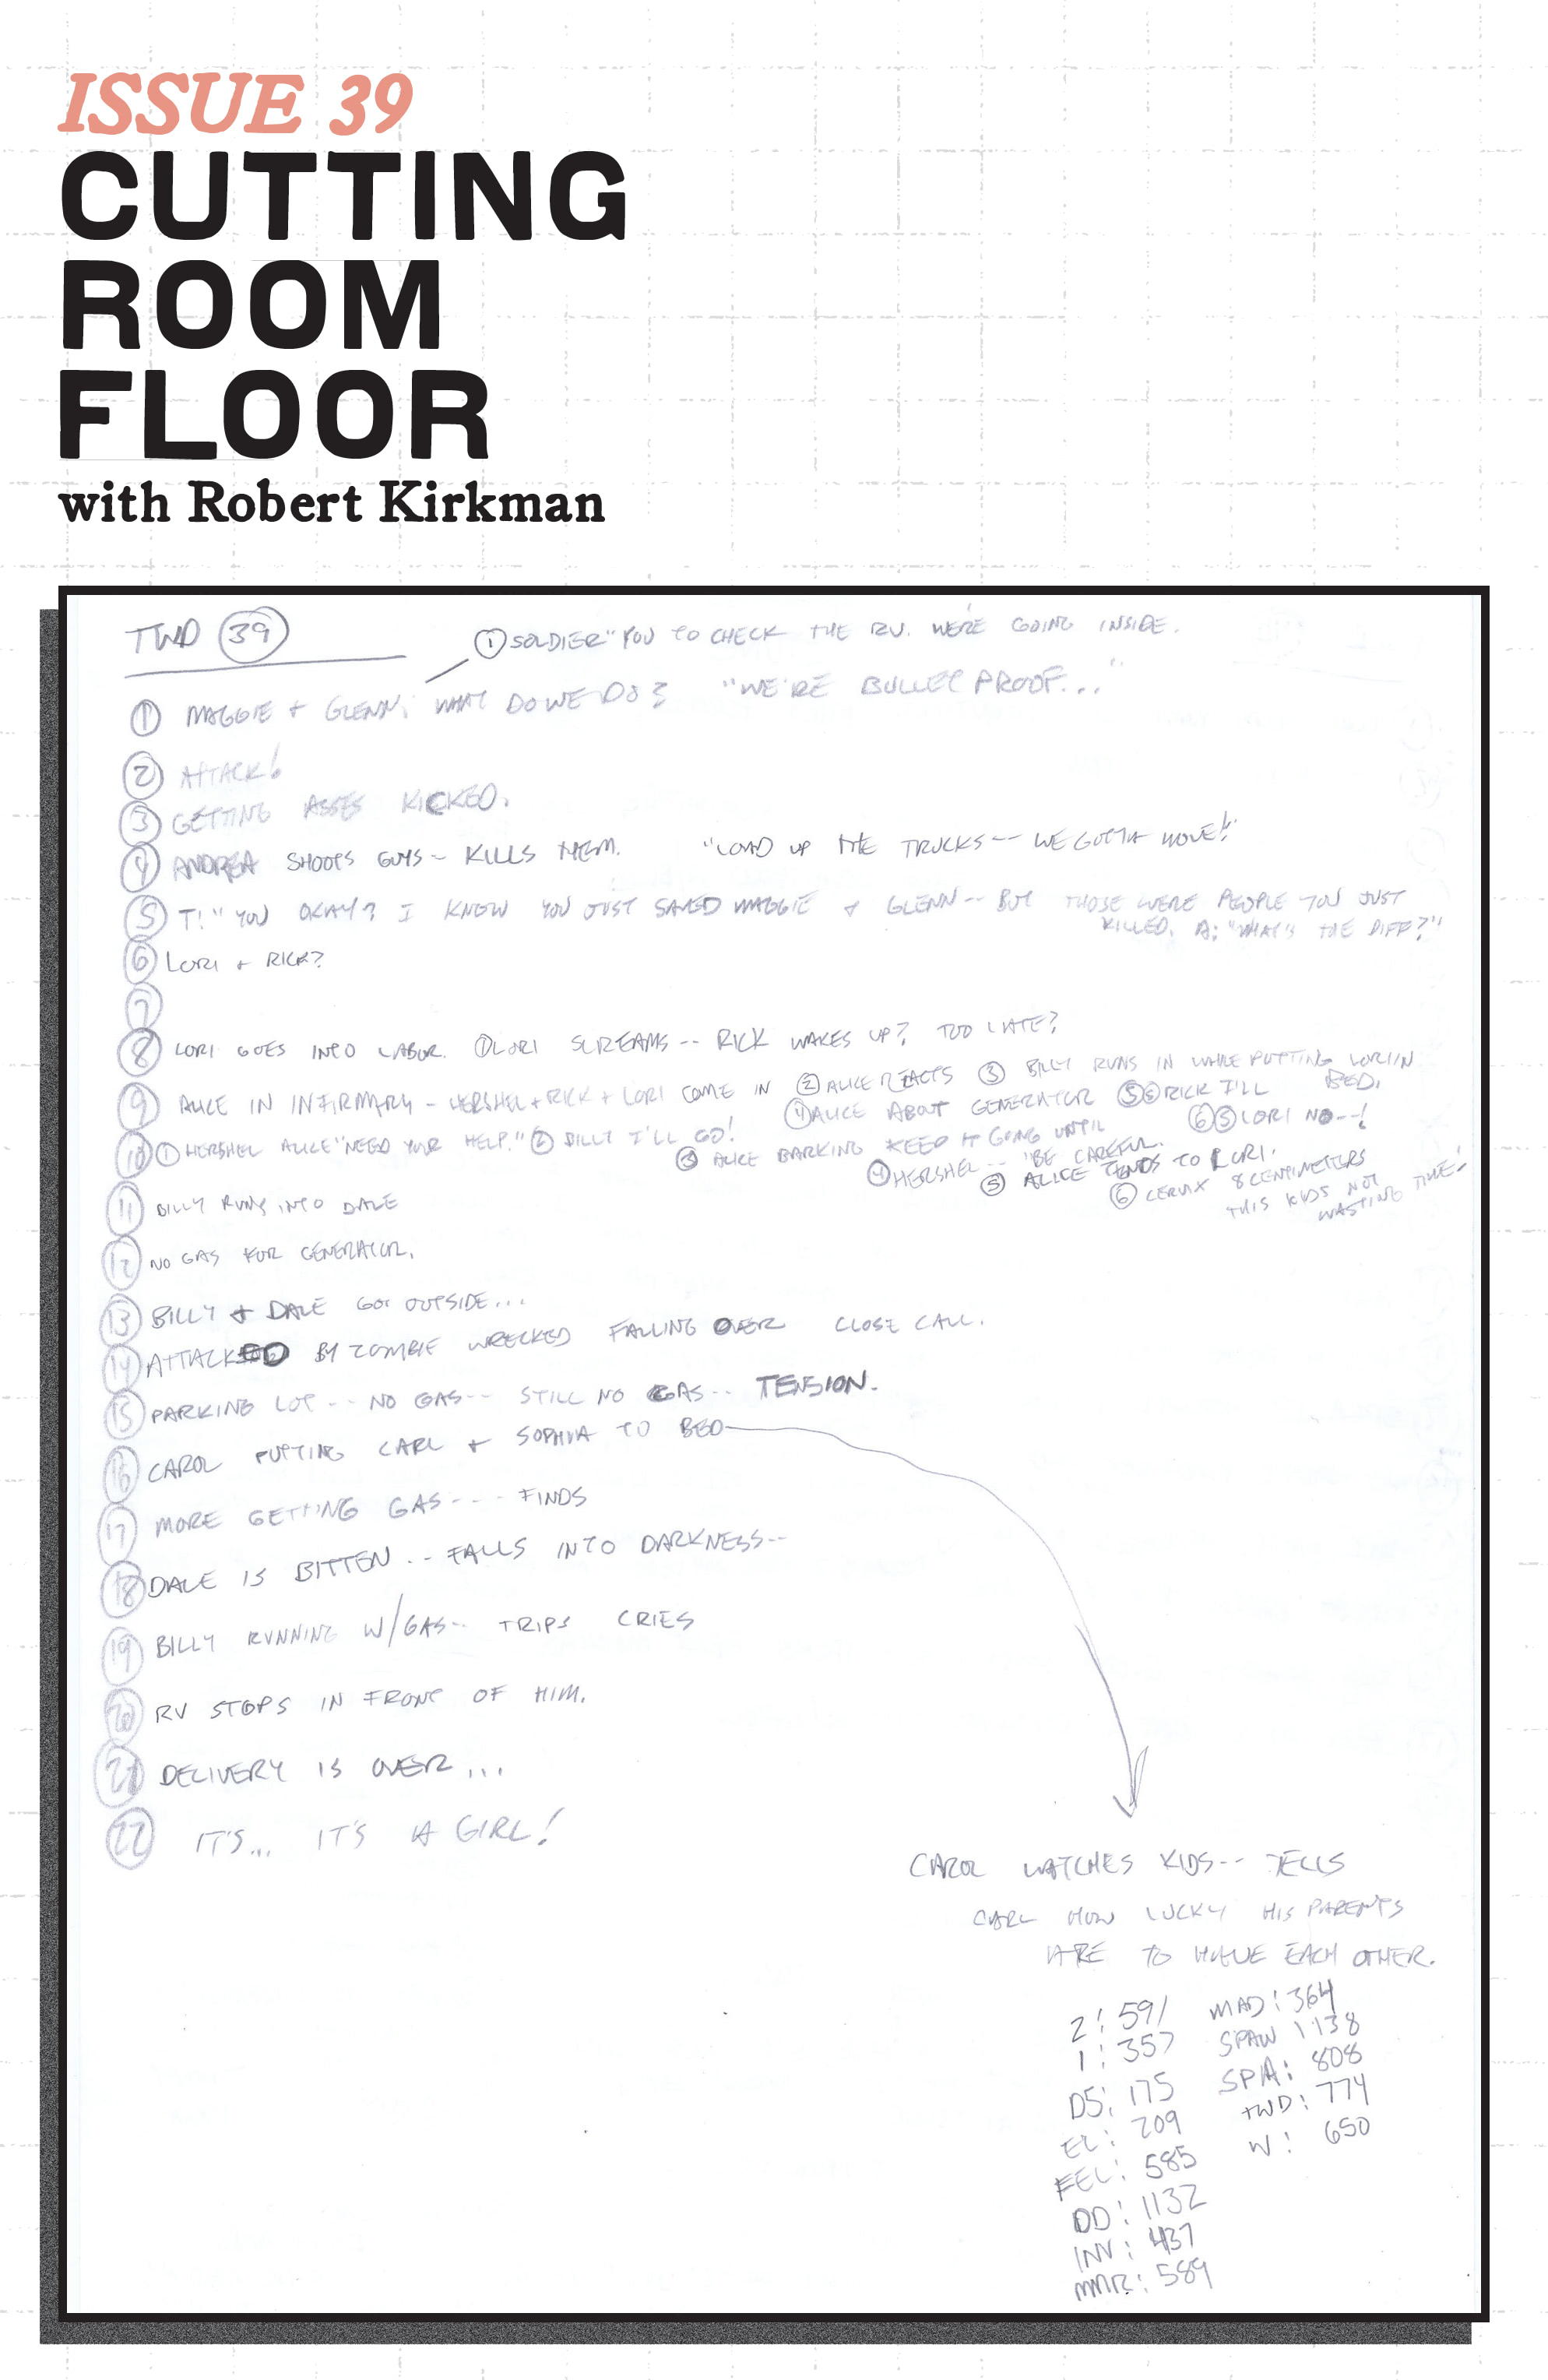 ISSUE 39
CUTTING
ROOM
FLOOR
with Robert Kirkman
TWD 39
① SOLDIER "YOU TO CHECK THE RV. WE'RE GOING INSIDE.
① MAGGIE + GLENN: WHAT DO WE DO? "WE'RE BULLET PROOF..."
② ATTACK!
③ GETTING ASSES KICKED.
④ ANDREA SHOOTS GUYS-- KILLS THEM. "LOAD UP THE TRUCKS-- WE GOTTA MOVE!"
⑤ T: "YOU OKAY? I KNOW YOU JUST SAVED MAGGIE + GLENN-- BUT THOSE WERE PEOPLE YOU JUST
KILLED. A: "WHAT'S THE DIFF?"
⑥ LORI + RICK?
⑦
⑧ LORI GOES INTO LABOR. ① LORI SCREAMS-- RICK WAKES UP? TOO LATE?
⑨ ALICE IN INFIRMARY - HERSHEL + RICK + LORI COME IN ② ALICE REACTS ③ BILLY RUNS IN WHILE PUTTING LORI IN
BED.
④ ALICE ABOUT GENERATOR ⑤⑥ RICK I'LL ⑥⑤ LORI NO--!
⑩ ① HERSHEL ALICE "NEED YOUR HELP." ② BILLY I'LL GO! ③ ALICE BARKING KEEP IT GOING UNTIL
④ HERSHEL-- "BE CAREFUL.
⑤ ALICE TENDS TO LORI.
⑥ CERVIX 8 CENTIMETERS
THIS KIDS NOT
WASTING TIME!
⑪ BILLY RUNS INTO DALE
⑫ NO GAS FOR GENERATOR.
⑬ BILLY + DALE GO OUTSIDE...
⑭ ATTACKED BY ZOMBIE WRECKED FALLING OVER CLOSE CALL.
⑮ PARKING LOT-- NO GAS-- STILL NO GAS-- TENSION.
⑯ CAROL PUTTING CARL + SOPHIA TO BED
⑰ MORE GETTING GAS---- FINDS
⑱ DALE IS BITTEN... FALLS INTO DARKNESS--
⑲ BILLY RUNNING W/GAS-- TRIPS CRIES
⑳ RV STOPS IN FRONT OF HIM.
㉑ DELIVERY IS OVER...
㉒ IT'S... IT'S A GIRL!
CAROL WATCHES KIDS-- TELLS
CARL HOW LUCKY HIS PARENTS
ARE TO HAVE EACH OTHER.
2: 591 MAD: 364
1: 357 SPAW 1138
D5: 175 SPA: 808
EL: 209 TWD: 774
FEL: 585 W: 650
DD: 1132
INV: 437
MMR: 589